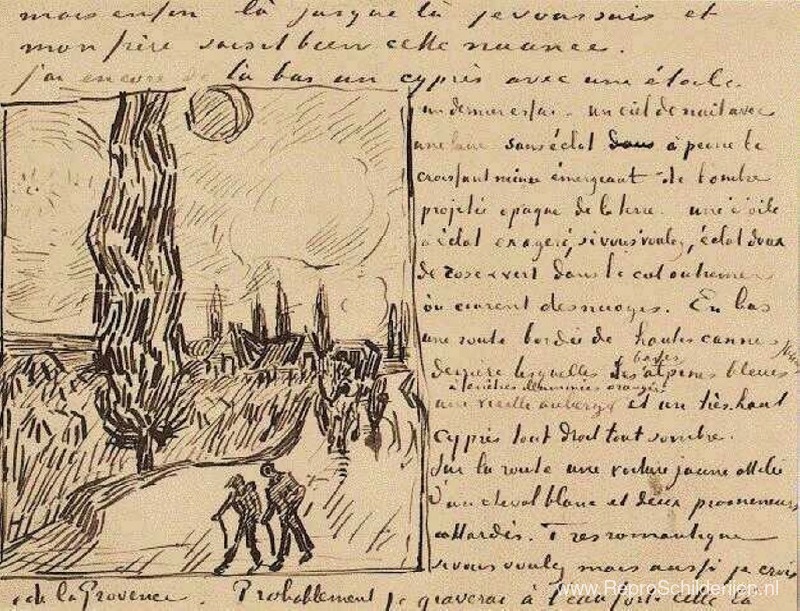 mais enfin là jusque là je vous suis et
mon frère saisit bien cette nuance.
j'ai encore de là bas un cyprès avec une étoile
un dernier essai – un ciel de nuit avec
une lune sans éclat dans à peine le
croissant mince émergeant de l'ombre
projetée opaque de la terre. une étoile
à éclat exagéré, si vous voulez, éclat doux
de rose et vert dans le ciel outremer
où courent des nuages. En bas
une route bordée de hautes cannes
derrière lesquelles les basses alpines bleues
une vieille auberge à fenêtres illuminées orangée et un très haut
cyprès tout droit tout sombre.
Sur la route une voiture jaune attelée
d'un cheval blanc et deux promeneurs
attardés. Très romantique
si vous voulez mais aussi je crois
de la Provence Probablement je graverai à l'eau forte celle là
www.ReproSchilderijen.nl